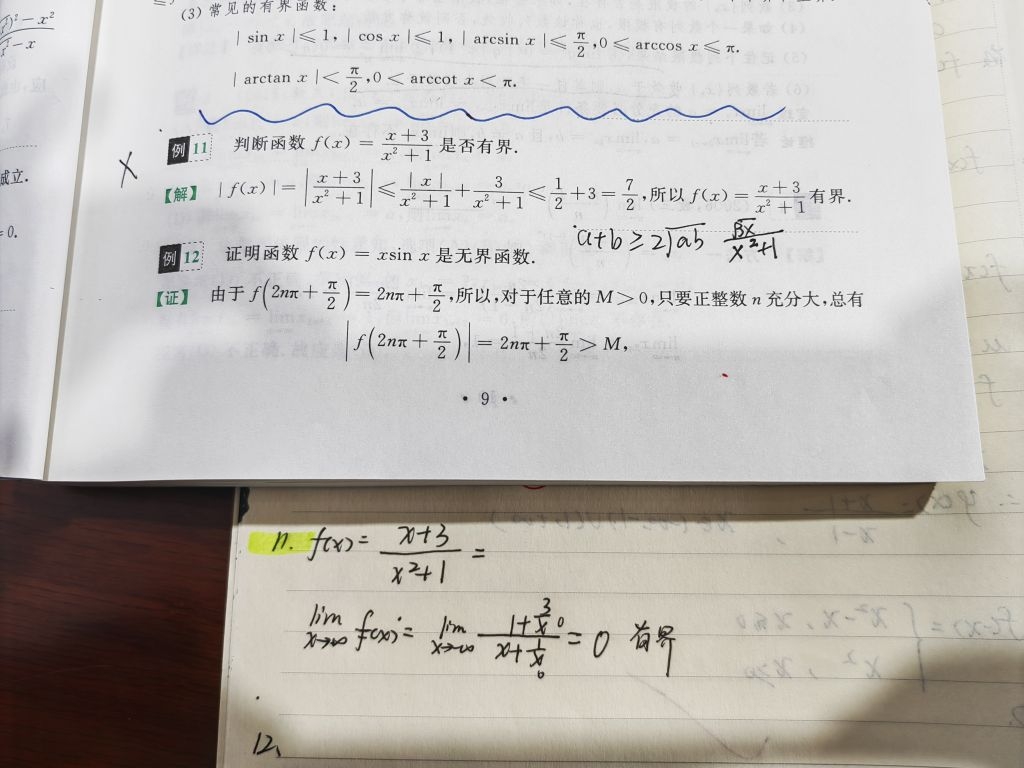 (3) 常见的有界函数：
| sin x |≤ 1, | cos x |≤ 1, | arcsin x |≤ π/2, 0 ≤ arccos x ≤ π.
| arctan x | < π/2, 0 < arccot x < π.
例 11 判断函数 f(x) = (x+3)/(x²+1) 是否有界.
【解】 | f(x) | = |(x+3)/(x²+1)| ≤ |x|/(x²+1) + 3/(x²+1) ≤ 1/2 + 3 = 7/2, 所以 f(x) = (x+3)/(x²+1) 有界.
a+b ≥ 2√ab
例 12 证明函数 f(x) = xsin x 是无界函数.
【证】 由于 f(2nπ + π/2) = 2nπ + π/2, 所以, 对于任意的 M > 0, 只要正整数 n 充分大, 总有
|f(2nπ + π/2)| = 2nπ + π/2 > M,
· 9 ·
成立.
= 0.
11. f(x) = (x+3)/(x²+1) =
lim x→∞ f(x) = lim x→∞ (1+3/x)/(x+1/x) = 0 有界
12、